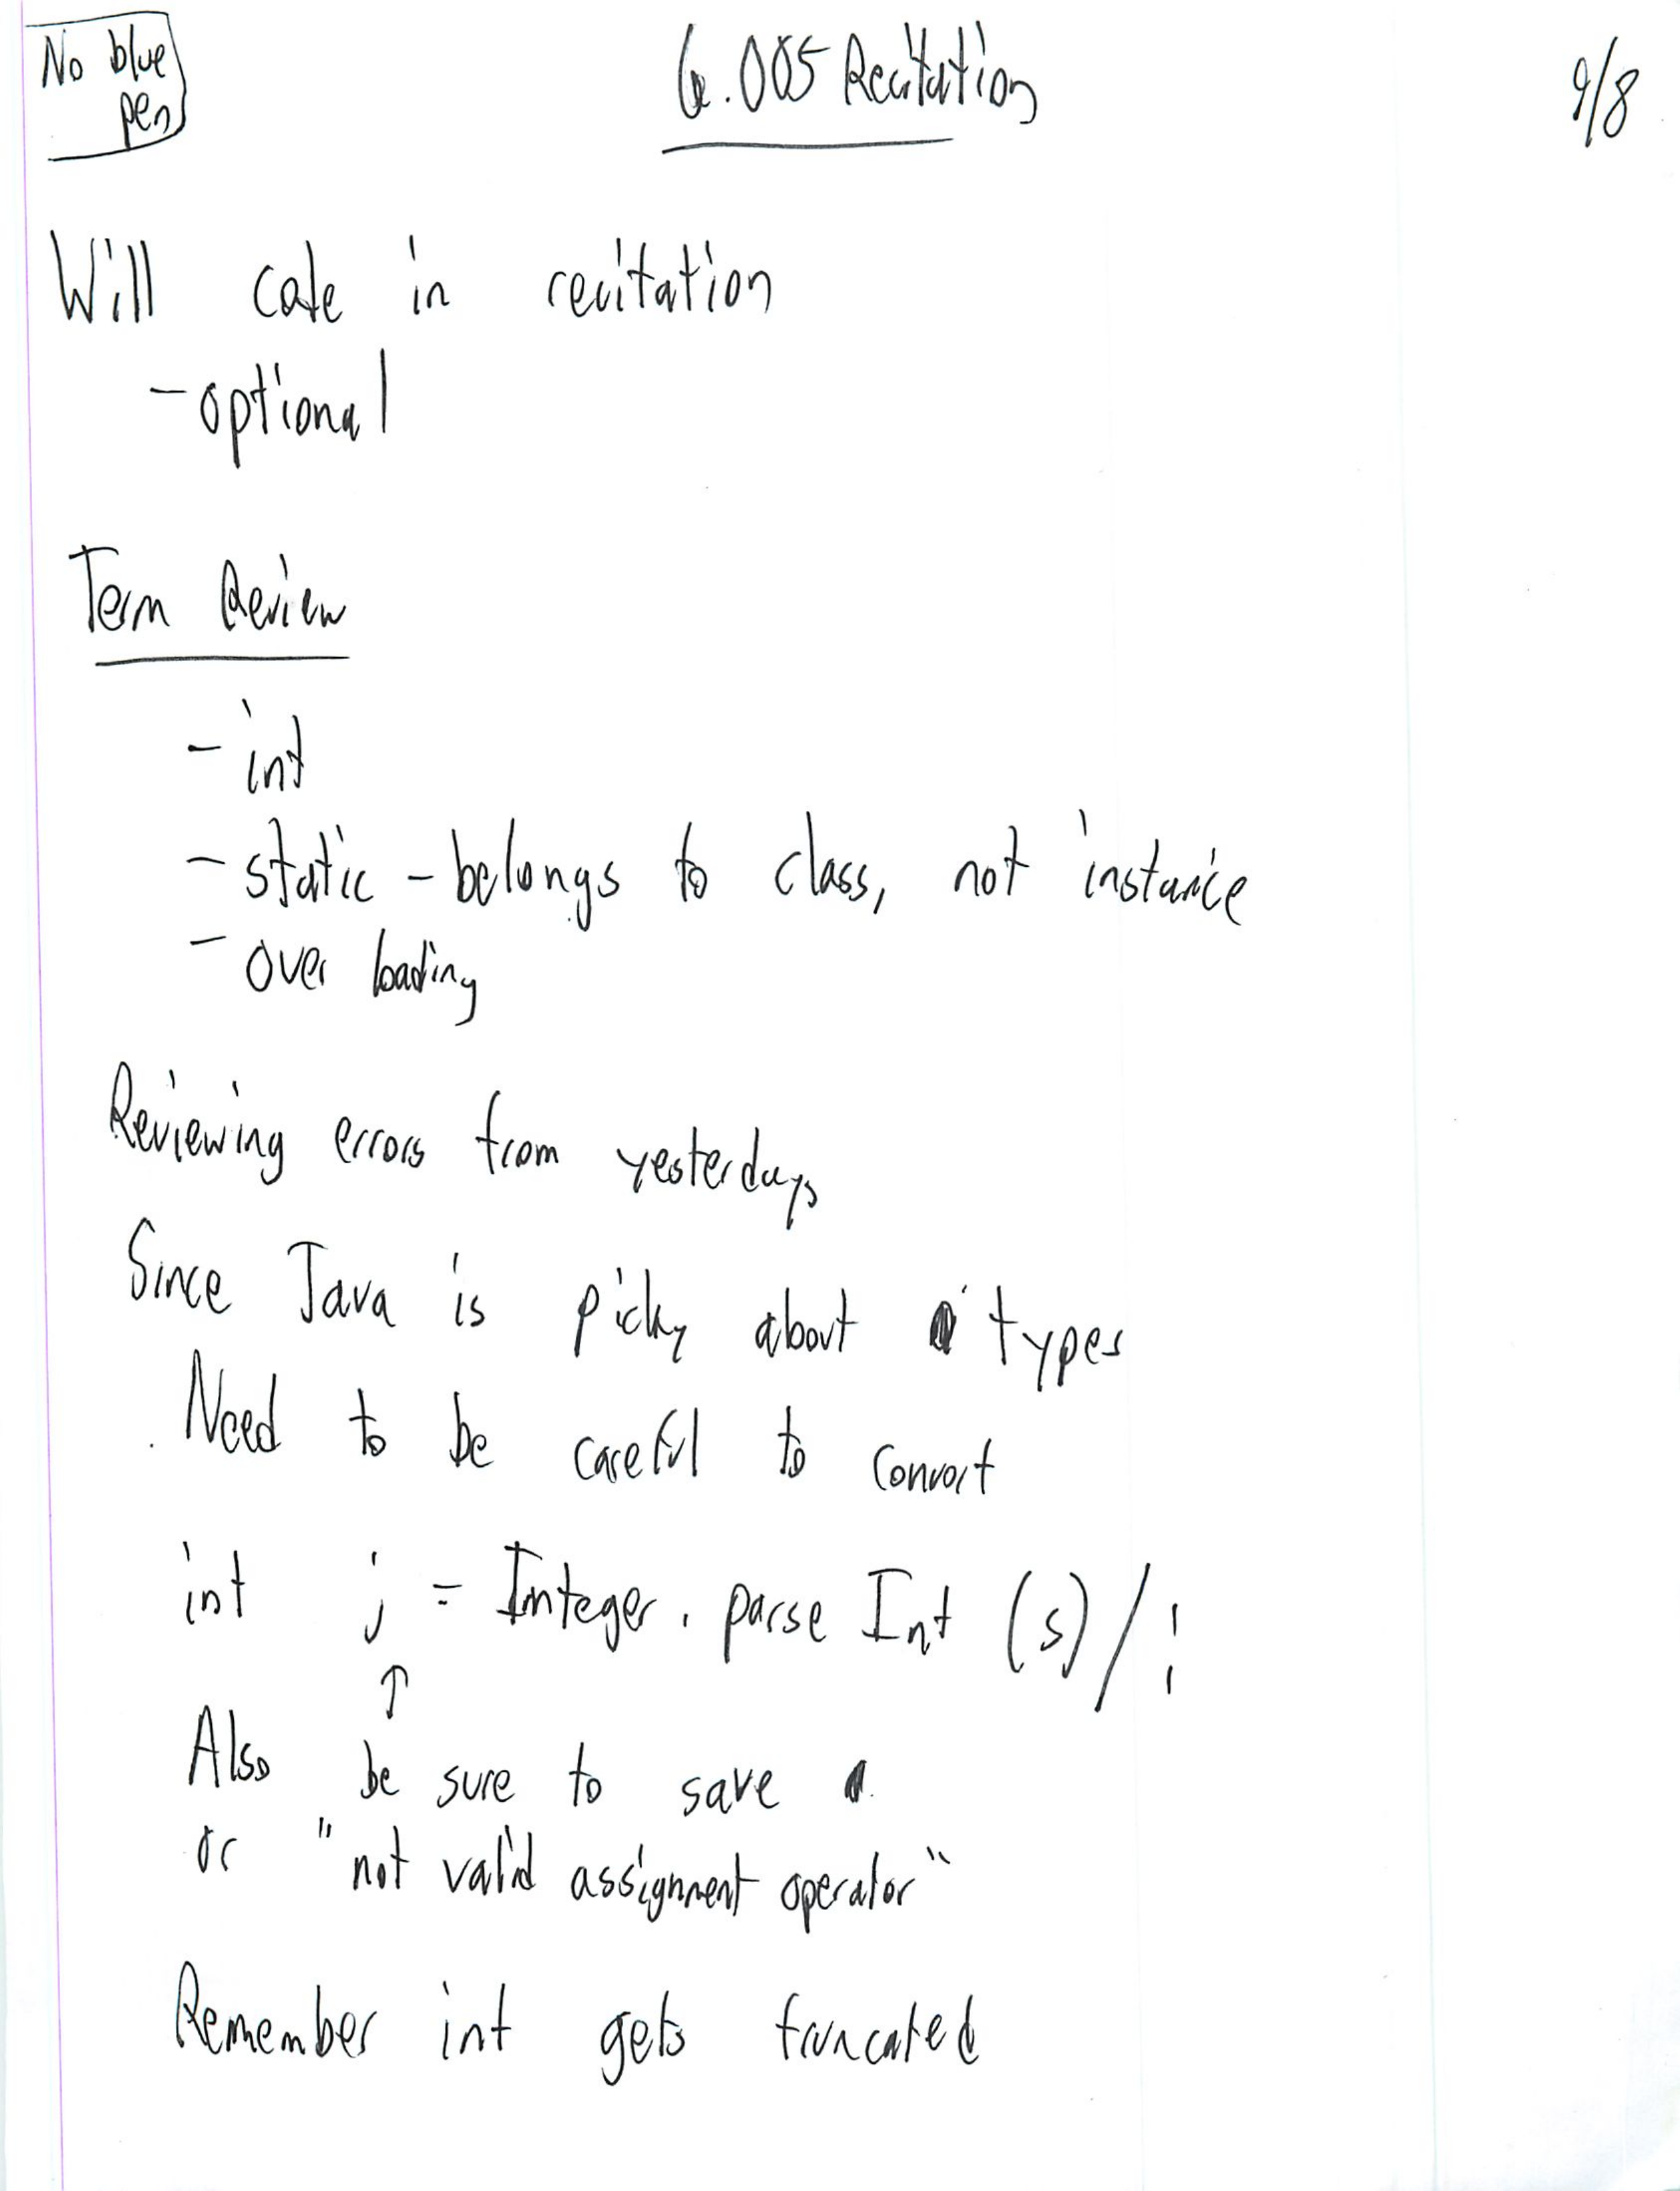 No blue
pen
6.005 Recitation
9/8
Will code in recitation
- optional
Term Review
- int
- static - belongs to class, not instance
- over loading
Reviewing errors from yesterdays
Since Java is picky about types
Need to be careful to convert
int j = Integer. parse Int (s)/i
↑
Also be sure to save
or "not valid assignment operator"
Remember int gets truncated